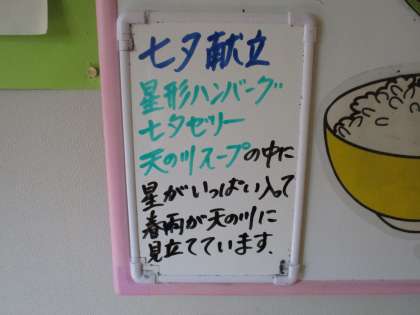 七夕献立
星形ハンバーグ
七夕ゼリー
天の川スープの中に
星がいっぱい入って
春雨が天の川に
見立てています.